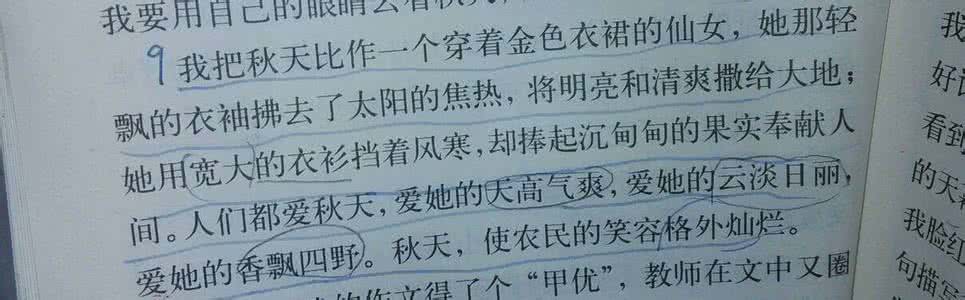 我要用自己的眼睛去看秋天
9 我把秋天比作一个穿着金色衣裙的仙女，她那轻
飘的衣袖拂去了太阳的焦热，将明亮和清爽撒给大地；
她用宽大的衣衫挡着风寒，却捧起沉甸甸的果实奉献人
间。人们都爱秋天，爱她的天高气爽，爱她的云淡日丽，
爱她的香飘四野。秋天，使农民的笑容格外灿烂。
的作文得了个“甲优”，教师在文中又圈
我
好
看到
的天
我脸红
句描写